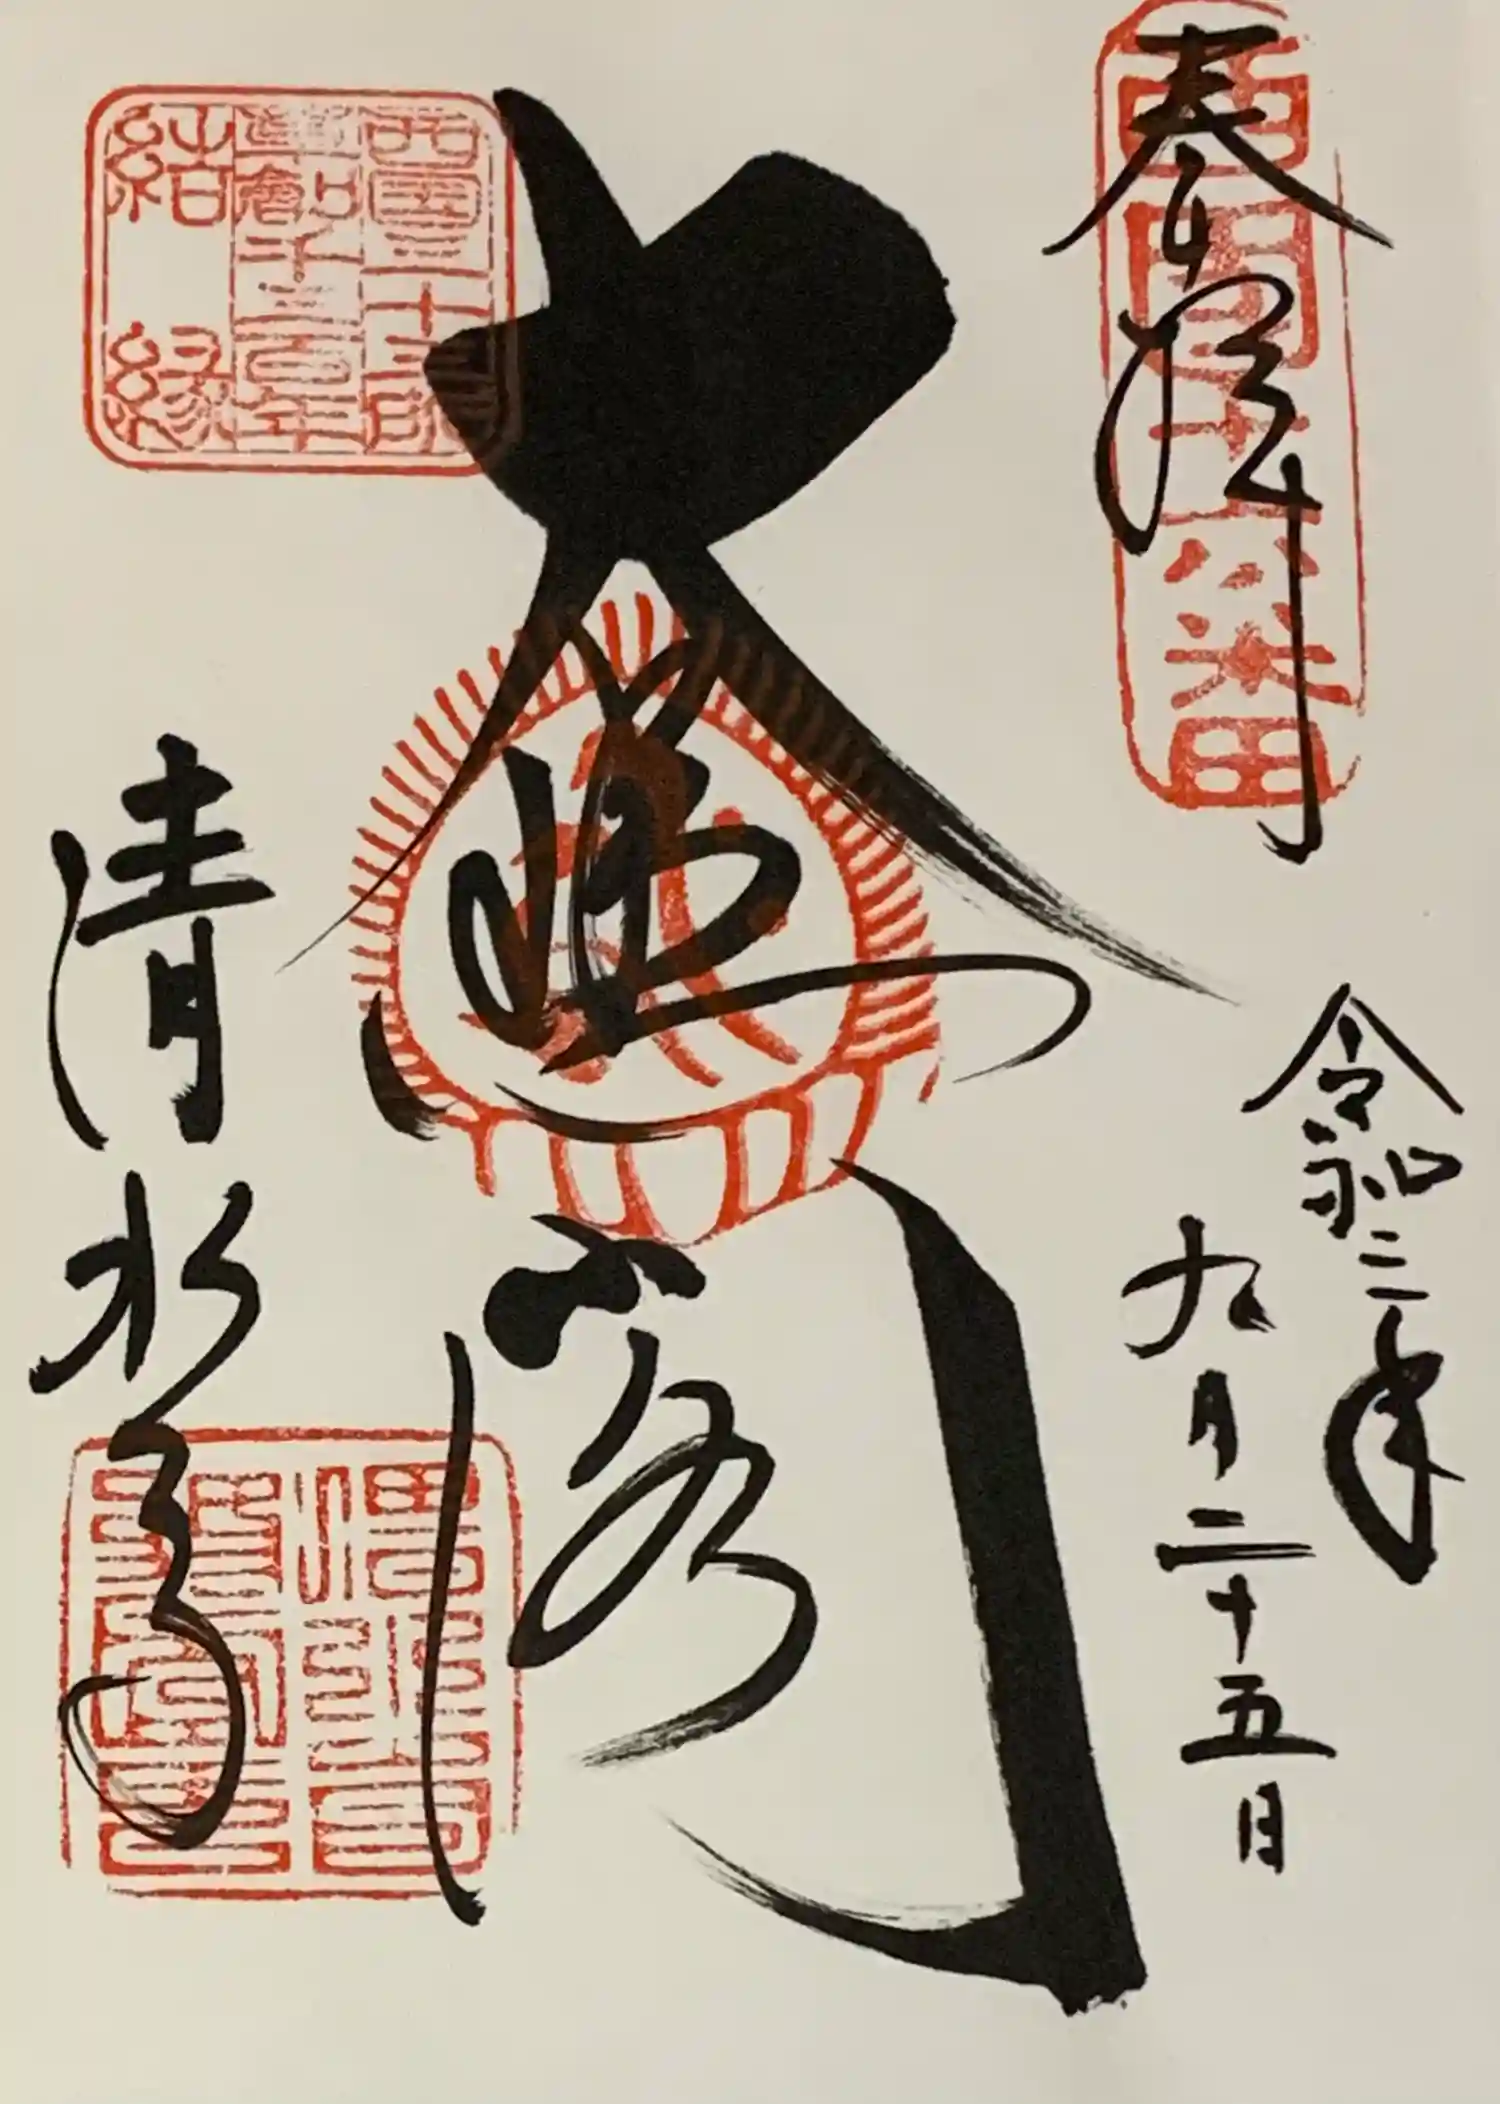 奉拝
西国十六番
令和二年
九月二十五日
大悲閣
清水寺
西國三十三所
草創千三百年
結縁